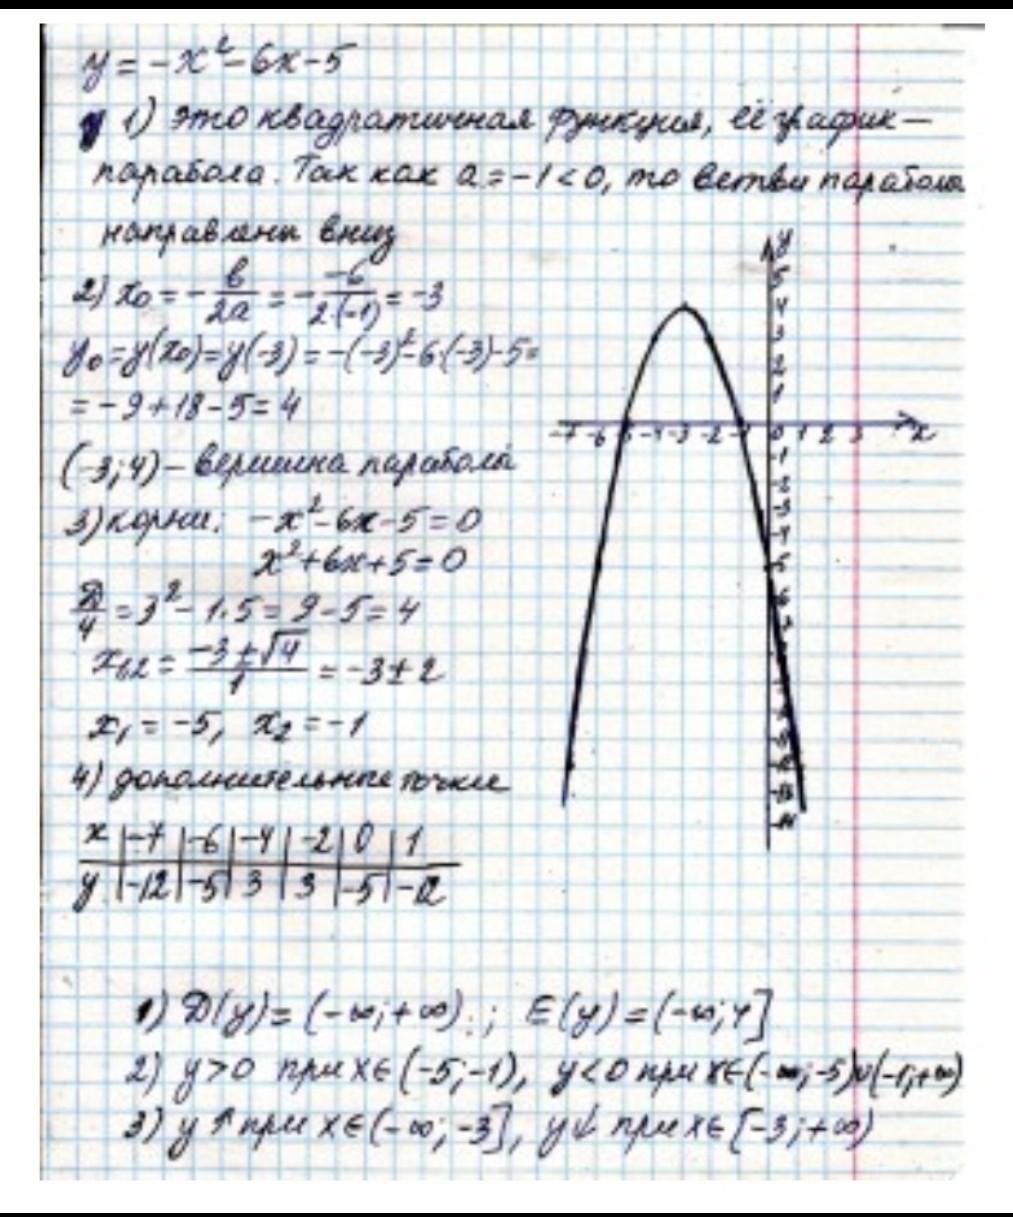 y = -x² - 6x - 5
1) это квадратичная функция, её график -
парабола. Так как a = -1 < 0, то ветви параболы
направлены вниз
2) x₀ = -в/2a = - -6/2·(-1) = -3
y₀ = y(x₀) = y(-3) = -(-3)² - 6·(-3) - 5 =
= -9 + 18 - 5 = 4
(-3; 4) - вершина параболы
3) корни: -x² - 6x - 5 = 0
x² + 6x + 5 = 0
D/4 = 3² - 1·5 = 9 - 5 = 4
x₁,₂ = -3 ± √4/1 = -3 ± 2
x₁ = -5, x₂ = -1
4) дополнительные точки
x | -7 | -6 | -4 | -2 | 0 | 1
y | -12 | -5 | 3 | 3 | -5 | -12
y
5
4
3
2
1
-7 -6 -5 -4 -3 -2 -1 0 1 2 3 x
-1
-2
-3
-4
-5
-6
-12
-13
-14
1) D(y) = (-∞; +∞); E(y) = (-∞; 4]
2) y > 0 при x ∈ (-5; -1), y < 0 при x ∈ (-∞; -5) ∪ (-1; +∞)
3) y ↑ при x ∈ (-∞; -3], y ↓ при x ∈ [-3; +∞)